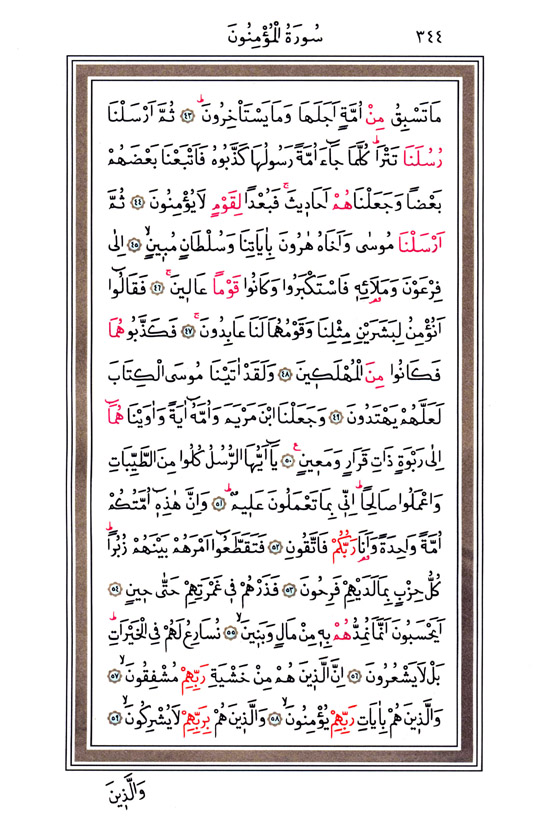 سُورَةُ الْمُؤْمِنُونَ ٣٤٤
مَا تَسْبِقُ مِنْ اُمَّةٍ اَجَلَهَا وَمَا يَسْتَأْخِرُونَۜ ﴿٤٣﴾ ثُمَّ اَرْسَلْنَا
رُسُلَنَا تَتْرَاۜ كُلَّمَا جَٓاءَ اُمَّةً رَسُولُهَا كَذَّبُوهُ فَاَتْبَعْنَا بَعْضَهُمْ
بَعْضًا وَجَعَلْنَاهُمْ اَحَاد۪يثَۚ فَبُعْدًا لِقَوْمٍ لَا يُؤْمِنُونَ ﴿٤٤﴾ ثُمَّ
اَرْسَلْنَا مُوسٰى وَاَخَاهُ هٰرُونَ بِاٰيَاتِنَا وَسُلْطَانٍ مُب۪ينٍۙ ﴿٤٥﴾ اِلٰى
فِرْعَوْنَ وَمَلَا۬ئِه۪ فَاسْتَكْبَرُوا وَكَانُوا قَوْمًا عَال۪ينَۚ ﴿٤٦﴾ فَقَالُٓوا
اَنُؤْمِنُ لِبَشَرَيْنِ مِثْلِنَا وَقَوْمُهُمَا لَنَا عَابِدُونَۚ ﴿٤٧﴾ فَكَذَّبُوهُمَا
فَكَانُوا مِنَ الْمُهْلَك۪ينَ ﴿٤٨﴾ وَلَقَدْ اٰتَيْنَا مُوسَى الْكِتَابَ
لَعَلَّهُمْ يَهْتَدُونَ ﴿٤٩﴾ وَجَعَلْنَا ابْنَ مَرْيَمَ وَاُمَّهُٓ اٰيَةً وَاٰوَيْنَاهُمَٓا
اِلٰى رَبْوَةٍ ذَاتِ قَرَارٍ وَمَع۪ينٍ۟ ﴿٥٠﴾ يَٓا اَيُّهَا الرُّسُلُ كُلُوا مِنَ الطَّيِّبَاتِ
وَاعْمَلُوا صَالِحًاۜ اِنّ۪ي بِمَا تَعْمَلُونَ عَل۪يمٌۜ ﴿٥١﴾ وَاِنَّ هٰذِه۪ٓ اُمَّتُكُمْ
اُمَّةً وَاحِدَةً وَاَنَا۬ رَبُّكُمْ فَاتَّقُونِ ﴿٥٢﴾ فَتَقَطَّعُٓوا اَمْرَهُمْ بَيْنَهُمْ زُبُرًاۜ
كُلُّ حِزْبٍ بِمَا لَدَيْهِمْ فَرِحُونَ ﴿٥٣﴾ فَذَرْهُمْ ف۪ي غَمْرَتِهِمْ حَتّٰى ح۪ينٍ ﴿٥٤﴾
اَيَحْسَبُونَ اَنَّمَا نُمِدُّهُمْ بِه۪ مِنْ مَالٍ وَبَن۪ينَۙ ﴿٥٥﴾ نُسَارِعُ لَهُمْ فِي الْخَيْرَاتِۜ
بَلْ لَا يَشْعُرُونَ ﴿٥٦﴾ اِنَّ الَّذ۪ينَ هُمْ مِنْ خَشْيَةِ رَبِّهِمْ مُشْفِقُونَۙ ﴿٥٧﴾
وَالَّذ۪ينَ هُمْ بِاٰيَاتِ رَبِّهِمْ يُؤْمِنُونَۙ ﴿٥٨﴾ وَالَّذ۪ينَ هُمْ بِرَبِّهِمْ لَا يُشْرِكُونَۙ ﴿٥٩﴾
وَالَّذ۪ينَ